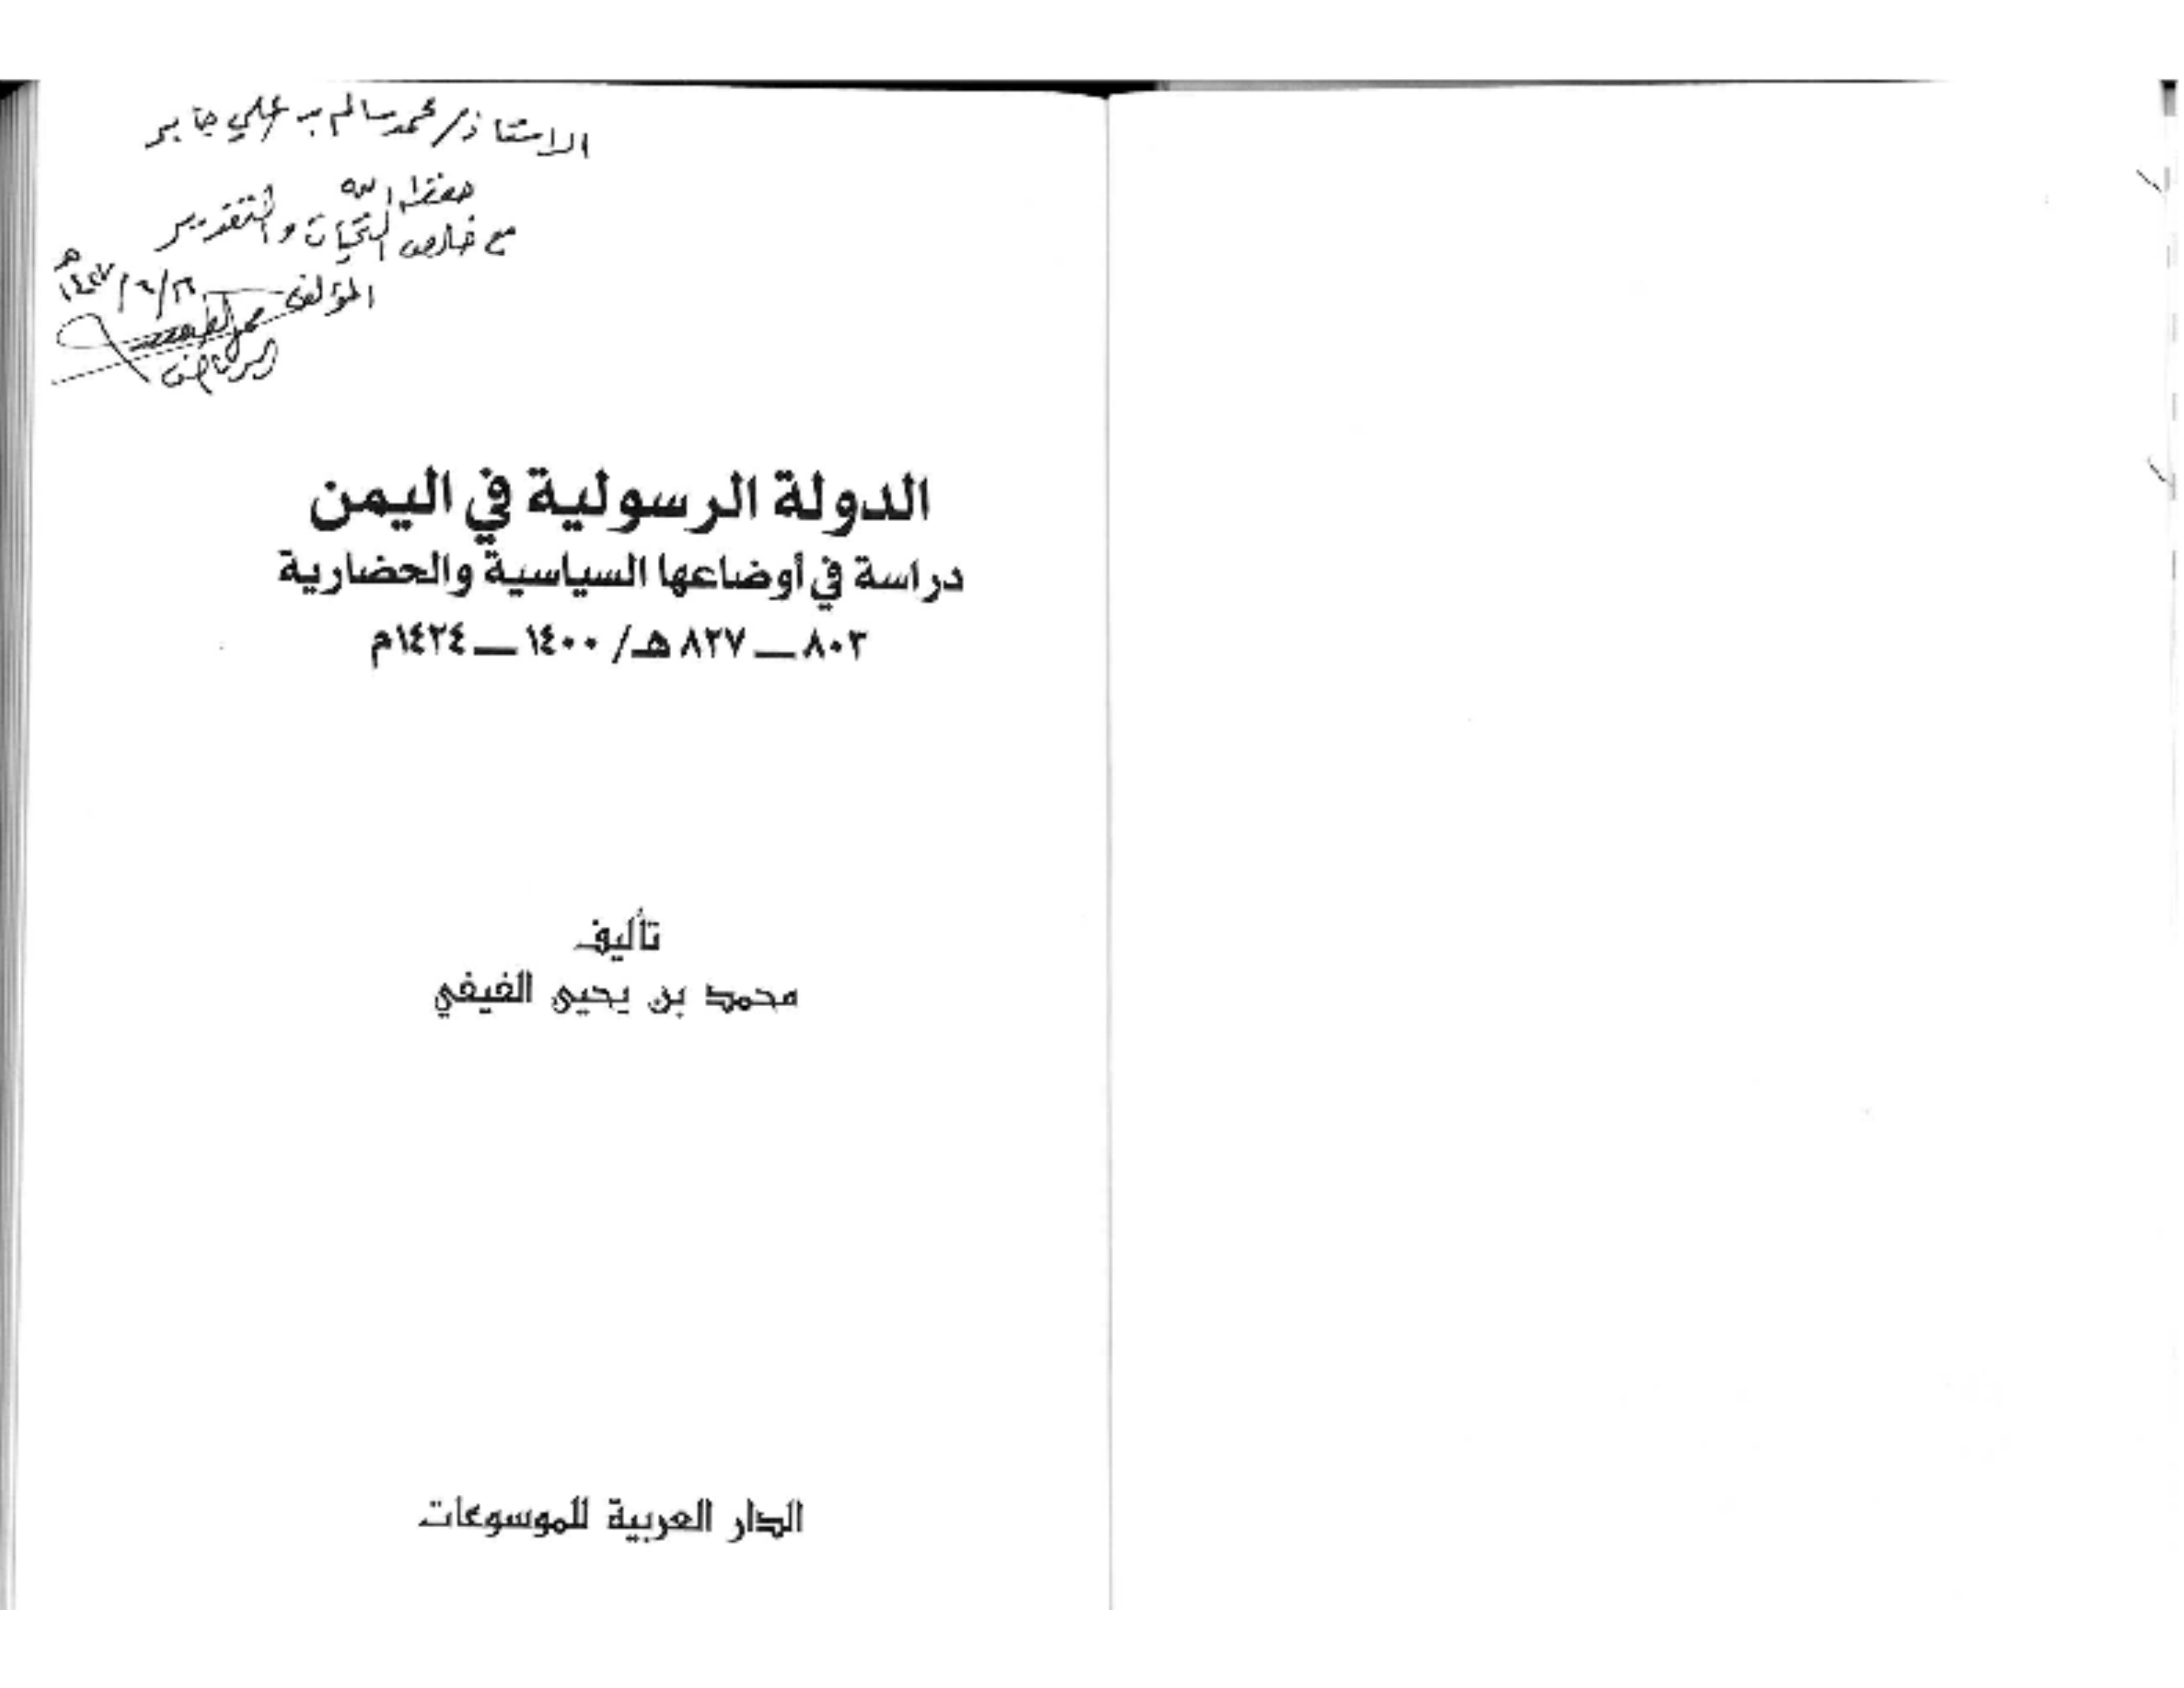 الاستاذ / محمد سالم بن علي جابر
حفظه الله
مع خالص التحيات والتقدير
المؤلف
الرياض
الدولة الرسولية في اليمن
دراسة في أوضاعها السياسية والحضارية
٨٠٣ – ٨٢٧ هـ / ١٤٠٠ – ١٤٢٤م
تأليف
محمد بن يحيى الفيفي
الدار العربية للموسوعات